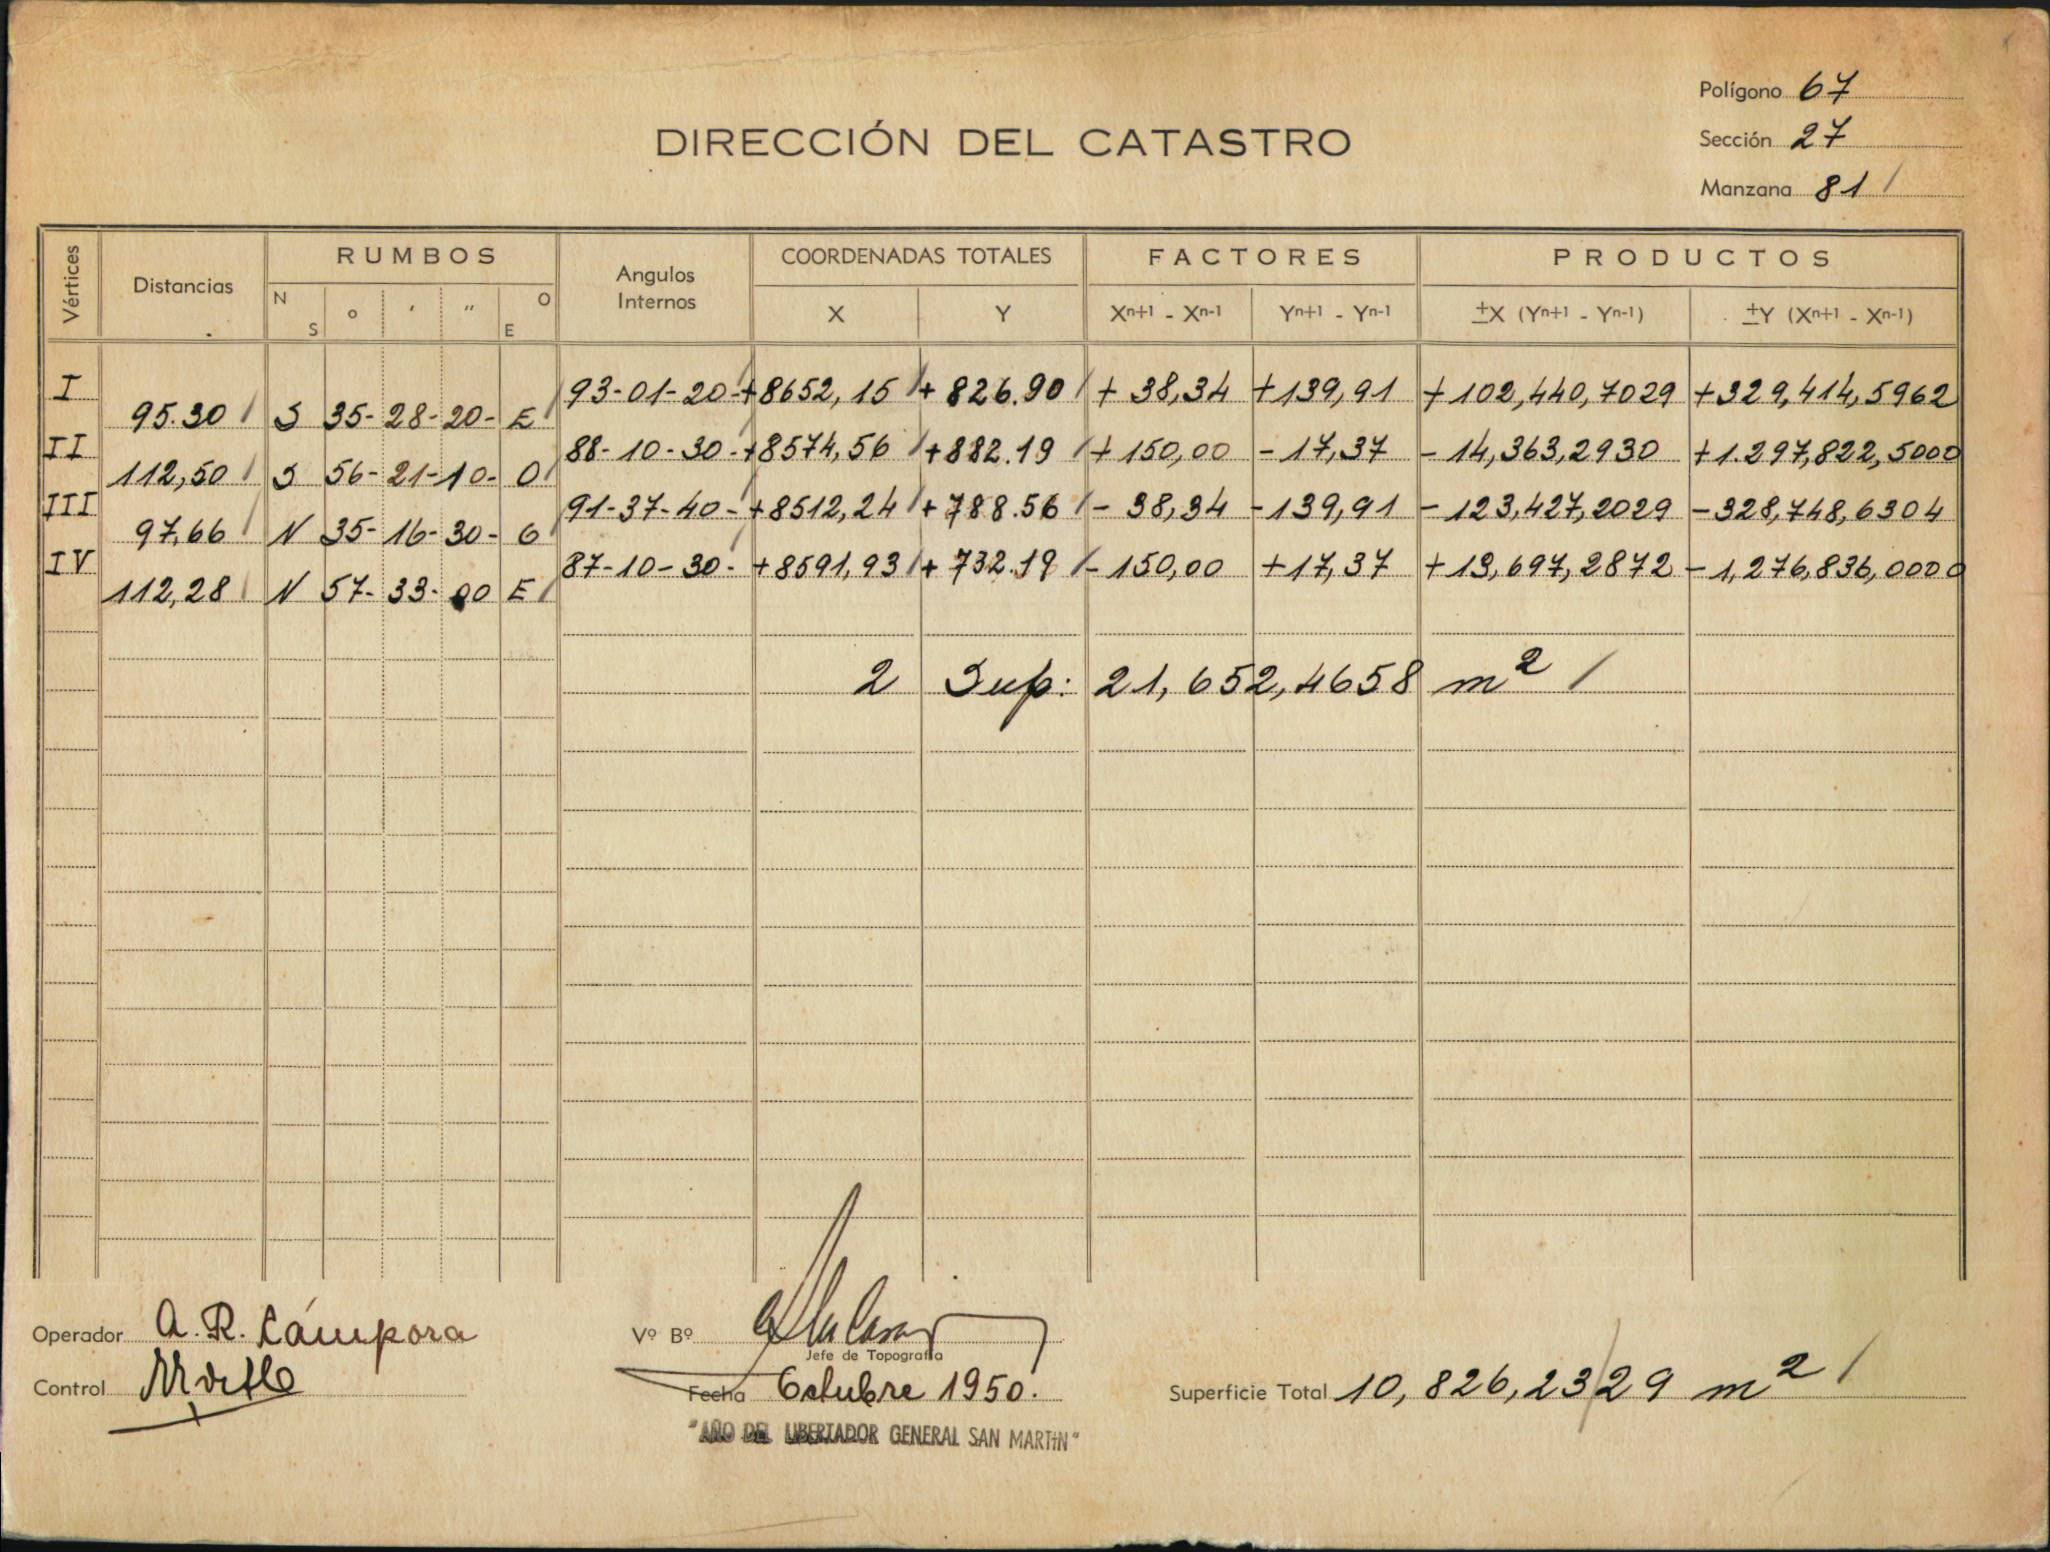 Polígono 67
Sección 27
Manzana 81
DIRECCIÓN DEL CATASTRO
Vértices Distancias RUMBOS Angulos Internos COORDENADAS TOTALES FACTORES PRODUCTOS
N S ° ' " O E X Y Xn+1 - Xn-1 Yn+1 - Yn-1 ±X (Yn+1 - Yn-1) ±Y (Xn+1 - Xn-1)
I 93-01-20- +8652,15 +826.90 +38,34 +139,91 +102,440,7029 +329,414,5962
95.30 S 35-28-20- E
II 88-10-30- +8574,56 +882.19 +150,00 -17,37 -14,363,2530 +1.297,822,5000
112,50 S 56-21-10- O
III 91-37-40- +8512,24 +788.56 -38,34 -139,91 -123,427,2029 -328,748,6304
97,66 N 35-16-30- O
IV 87-10-30- +8591,93 +732.19 -150,00 +17,37 +13,697,2872 -1,276,836,0000
112,28 N 57-33-00 E
2 Sup: 21,652,4658 m²
Operador A. R. Cámpora
Control
Vº Bº
Jefe de Topografía
Fecha Octubre 1950.
"AÑO DEL LIBERTADOR GENERAL SAN MARTIN"
Superficie Total 10,826,2329 m²